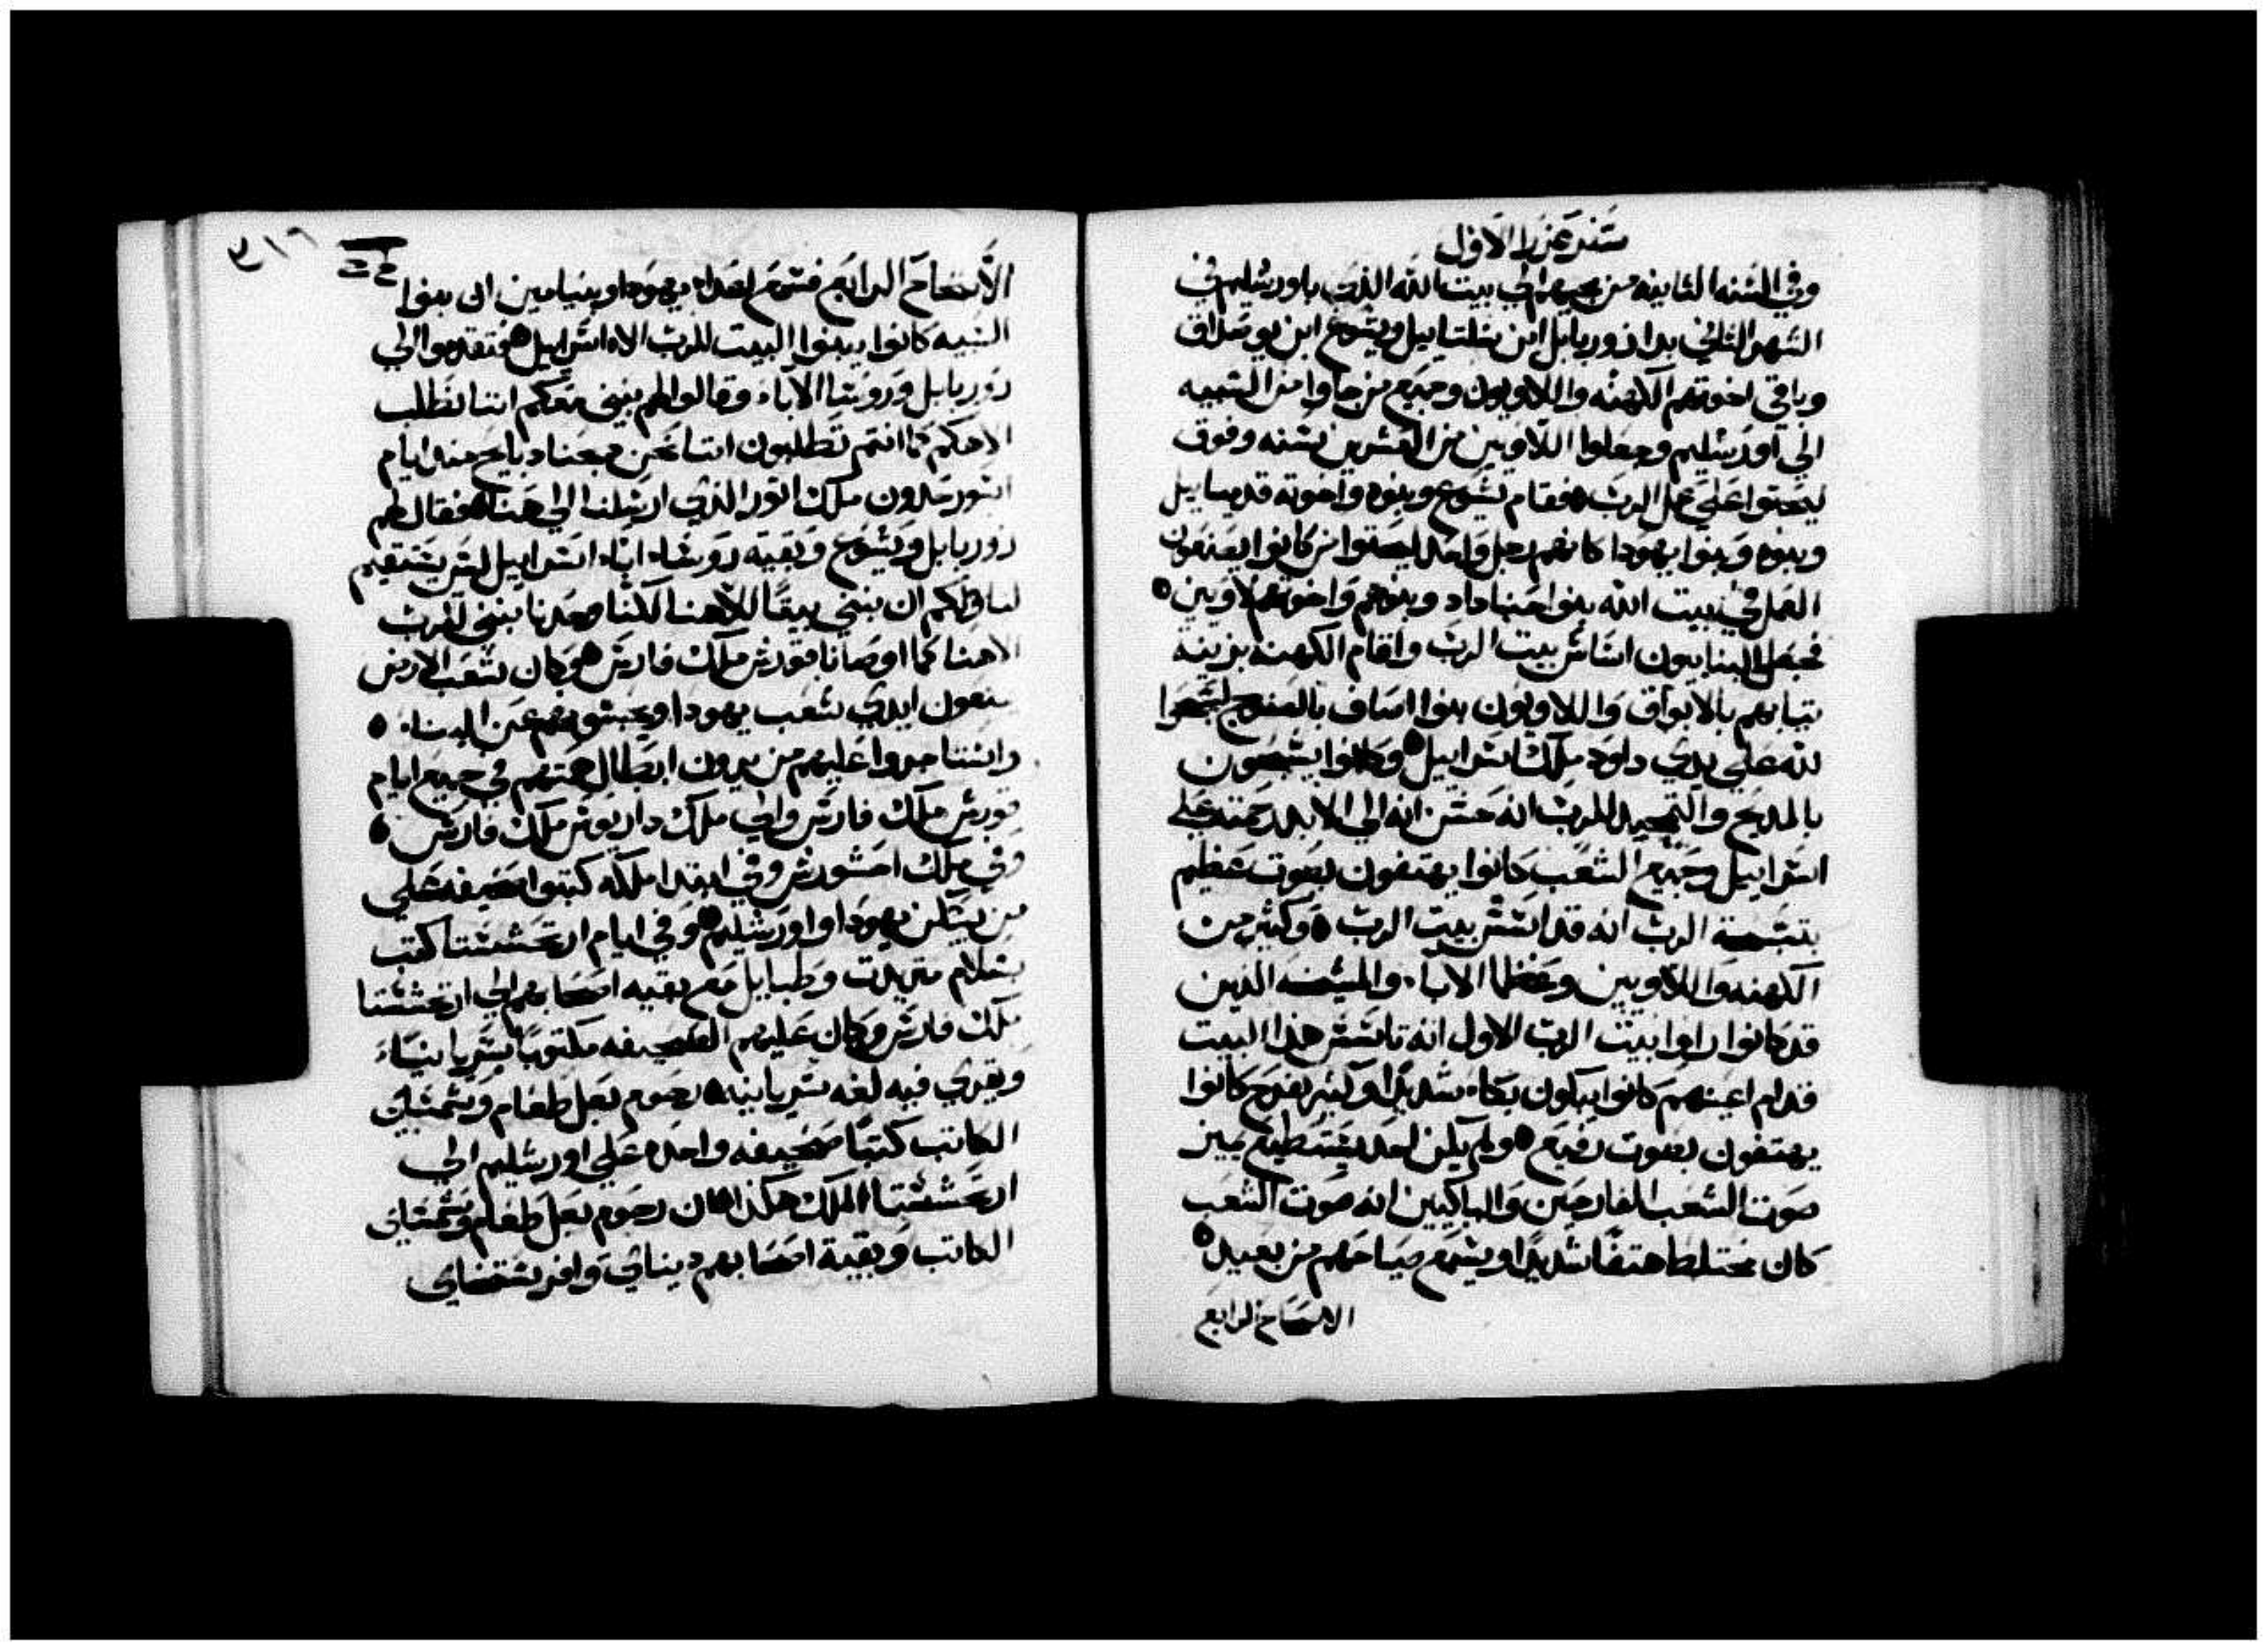 سفر عزرا الاول
وفي السنه الثانيه من مجيهم الي بيت الله الذي باورشليم في
الشهر الثاني بدا زوربابل ابن شلتاييل ويشوع ابن يوصداق
وباقي اخوتهم الكهنه واللاويون وجميع من جاوا من السبيه
الي اورشليم وجعلوا اللاويين من العشرين سنه وفوق
ليحتوا علي عمل الرب فقام يشوع وبنوه واخوته قدمياييل
وبنوه وبنوا يهودا كانهم رجل واحد ليحتوا من كانوا يصنعون
العمل في بيت الله بنوا حناداد وبنوهم واخوتهم لاويين
فجعل البنايون اساس بيت الرب واقام الكهنه بزينه
ثيابهم بالابواق واللاويون بنوا اساف بالصنوج ليسبحوا
لله علي يدي داود ملك اسراييل وكانوا يسبحون
بالمديح والتمجيد للرب انه حسن انه الي الابد رحمته علي
اسراييل وجميع الشعب كانوا يهتفون بصوت عظيم
بتسبحة الرب انه قد اتسس بيت الرب وكثير من
الكهنه واللاويين وعظما الاباء والمشيخه الذين
قد كانوا راوا بيت الرب الاول انه تاسس هذا البيت
قدام اعينهم كانوا يبكون بكاء شديدا وكثير بفرح كانوا
يهتفون بصوت رفيع ولم يكن احد يستطيع يميز
صوت الشعب الفارحين والباكيين انه صوت الشعب
كان مختلطا هتفا شديدا ويسمع صياحهم من بعيد
الاصحاح الرابع
الاصحاح الرابع فسمع اعداء يهودا وبنيامين ان بنوا
السبيه كانوا يبنوا البيت للرب الاه اسراييل فتقدموا الي
زوربابل وروسا الاباء وقالوا لهم نبني معكم اننا نطلب
الاهكم كما انتم تطلبون اننا نحن دبحنا دبايح منذ ايام
اسورحدون ملك اتور الذي ارسلنا الي هنا فقال لهم
زوربابل ويشوع وبقية روساء اباء اسراييل ليس يستقيم
لنا ولكم ان نبني بيتا لالاهنا لكننا وحدنا نبني للرب
الاهنا كما اوصانا قورش ملك فارس وكان شعب الارض
يمنعون ايدي شعب يهودا ويحبسونهم عن البناء
واستاجروا عليهم من يريدون ابطال همتهم في جميع ايام
قورش ملك فارس والي ملك داريوس ملك فارس
وفي ملك احشورش وفي ابتدا ملكه كتبوا صحيفه علي
من يسكن يهودا واورشليم وفي ايام ارتحششتا كتب
بسلام متريدت وطبايل مع بقيه اصحابهم الي ارتحششتا
ملك فارس وكان عليهم الصحيفه مكتوبا سريانياء
ويقري فيه لغه سريانيه رحوم بعل طعام وشمشاي
الكاتب كتبا صحيفه واحده علي اورشليم الي
ارتحششتا الملك هكذا كان رحوم بعل طعام وشمشاي
الكاتب وبقية اصحابهم ديناي وافرستخاي